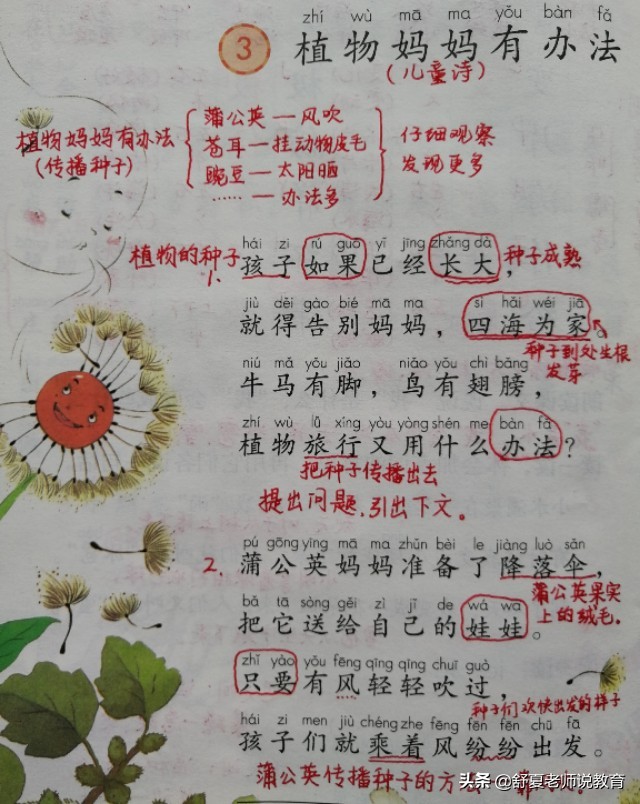 zhí wù mā ma yǒu bàn fǎ
3 植物妈妈有办法
(儿童诗)
植物妈妈有办法
(传播种子)
蒲公英—风吹
苍耳—挂动物皮毛
豌豆—太阳晒
……—办法多
仔细观察
发现更多
hái zi rú guǒ yǐ jīng zhǎng dà
植物的种子 孩子如果已经长大， 种子成熟
1、
jiù děi gào bié mā ma sì hǎi wéi jiā
就得告别妈妈，四海为家
种子到处生根
发芽
niú mǎ yǒu jiǎo niǎo yǒu chì bǎng
牛马有脚，鸟有翅膀，
zhí wù lǚ xíng yòu yòng shén me bàn fǎ
植物旅行又用什么办法？
把种子传播出去
提出问题，引出下文。
pú gōng yīng mā ma zhǔn bèi le jiàng luò sǎn
2、蒲公英妈妈准备了降落伞，
蒲公英果实
上的绒毛。
bǎ tā sòng gěi zì jǐ de wá wa
把它送给自己的娃娃。
zhǐ yào yǒu fēng qīng qīng chuī guò
只要有风轻轻吹过，
种子们欢快出发的样子
hái zi men jiù chéng zhe fēng fēn fēn chū fā
孩子们就乘着风纷纷出发。
蒲公英传播种子的方
头条 @舒夏老师说教育